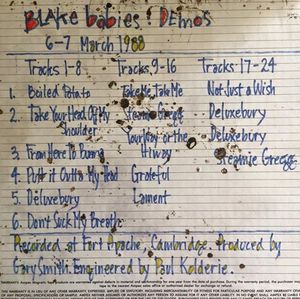 BLAKE BABIES' DEMOS
6-7 March 1988
Tracks 1-8 Tracks 9-16 Tracks 17-24
1. Boiled Potato Take Me, Take Me Not Just a Wish
2. Take Your Head Off My Shoulder Steamie Gregg Deluxebury
Your Way or the Hiway Deluxebury
3. From Here To Burma Steamie Gregg
4. Put it Outta My Head Grateful
5. Deluxebury Lament
6. Don't Suck My Breath
Recorded at Fort Apache, Cambridge. Produced by
Gary Smith. Engineered by Paul Kolderie.